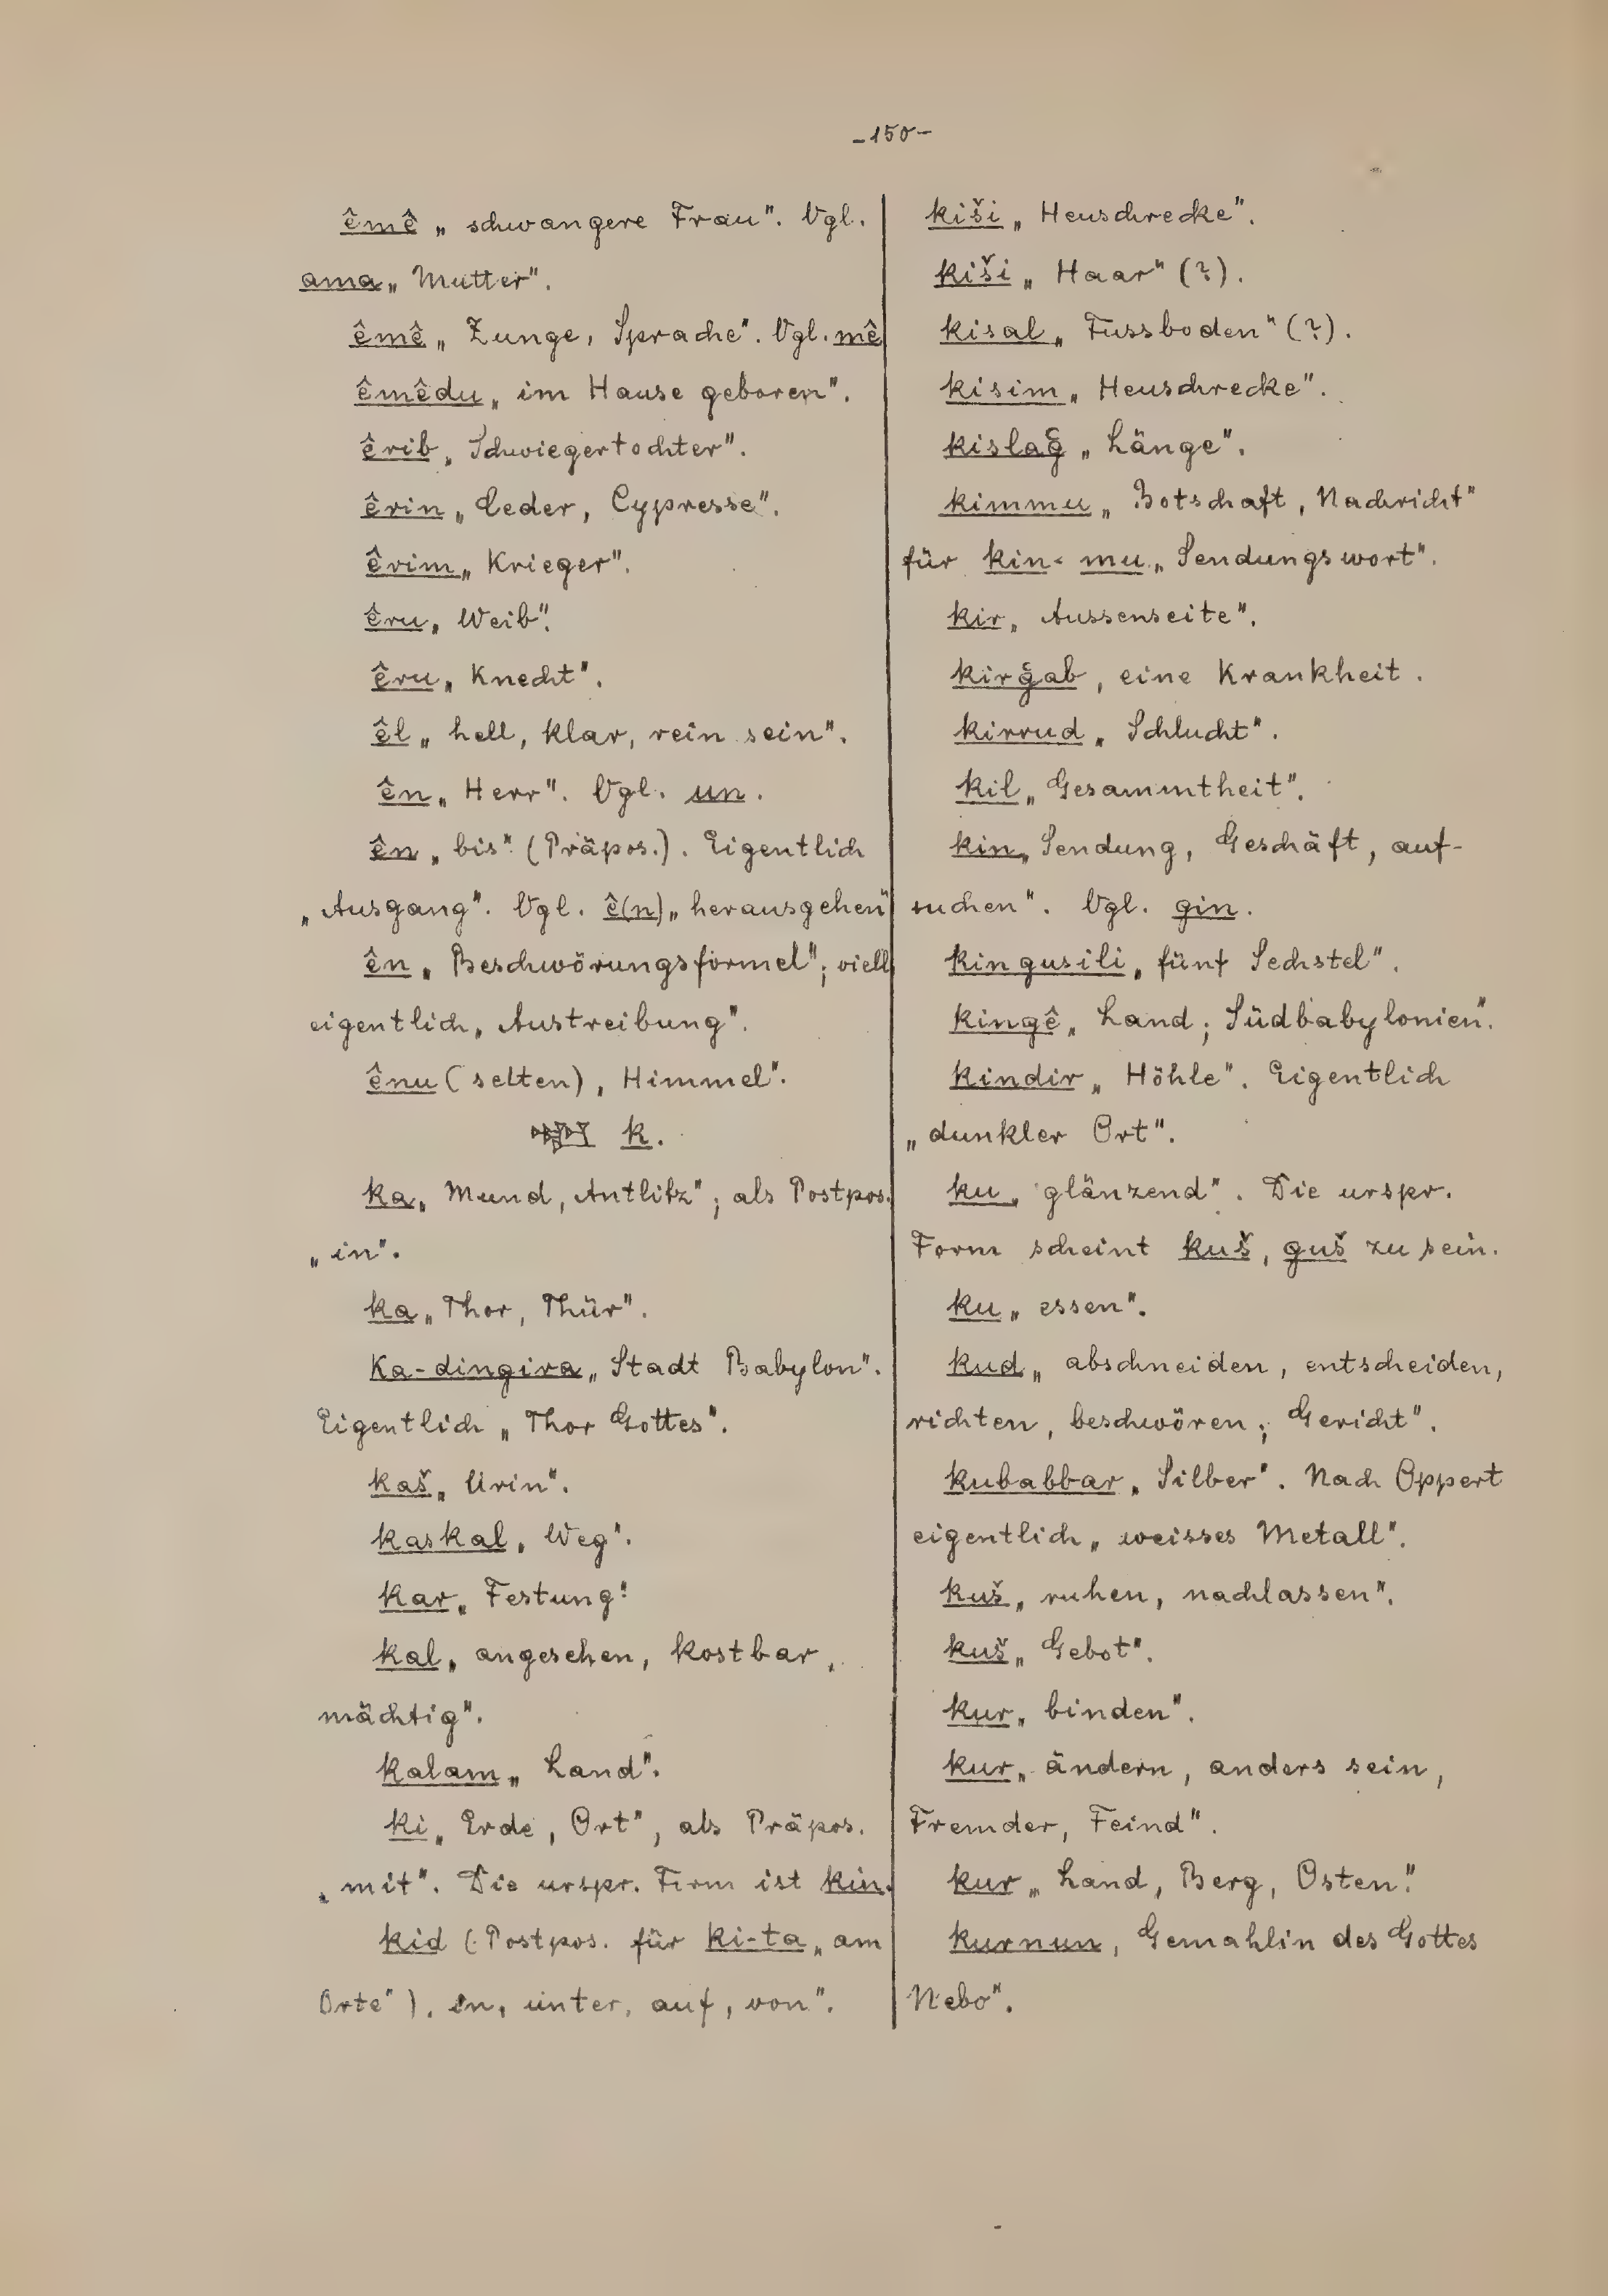 -150-
êmê „ schwangere Frau". Vgl.
ama „ Mutter".
êmê „ Zunge, Sprache". Vgl. mê
êmêdu „ im Hause geboren".
êrib „ Schwiegertochter".
êrin „ Ceder, Cypresse".
êrim „ Krieger".
êru „ Weib".
êru „ Knecht".
êl „ hell, klar, rein sein".
ên „ Herr". Vgl. un.
ên „ bis" (Präpos.). Eigentlich
„ Ausgang". Vgl. ê(n) „ herausgehen"
ên „ Beschwörungsformel"; viell.
eigentlich „ Austreibung".
ênu (selten) „ Himmel".
k.
ka „ Mund, Antlitz"; als Postpos.
„ in".
ka „ Thor, Thür".
Ka-dingira „ Stadt Babylon".
Eigentlich „ Thor Gottes".
kaš „ Urin".
kaskal „ Weg".
kar „ Festung".
kal „ angesehen, kostbar,
mächtig".
kalam „ Land".
ki „ Erde, Ort", als Präpos.
„ mit". Die urspr. Form ist kin.
kid (Postpos. für ki-ta „ am
Orte") „ in, unter, auf, von".
kiši „ Heuschrecke".
kiši „ Haar" (?).
kisal „ Fussboden" (?).
kisim „ Heuschrecke".
kislağ „ Länge".
kimmu „ Botschaft, Nachricht"
für kin-mu „ Sendungswort".
kir „ Aussenseite".
kirğab, eine Krankheit.
kirrud „ Schlucht".
kil „ Gesammtheit".
kin „ Sendung, Geschäft, auf-
suchen". Vgl. gin.
kingusili „ fünf Sechstel".
kingê „ Land; Südbabylonien".
kindir „ Höhle". Eigentlich
„ dunkler Ort".
ku „ glänzend". Die urspr.
Form scheint kuš, guš zu sein.
ku „ essen".
kud „ abschneiden, entscheiden,
richten, beschwören; Gericht".
kubabbar „ Silber". Nach Oppert
eigentlich „ weisses Metall".
kuš „ ruhen, nachlassen".
kuš „ Gebot".
kur „ binden".
kur „ ändern, anders sein,
Fremder, Feind".
kur „ Land, Berg, Osten".
kurnun, Gemahlin des Gottes
Nebo".